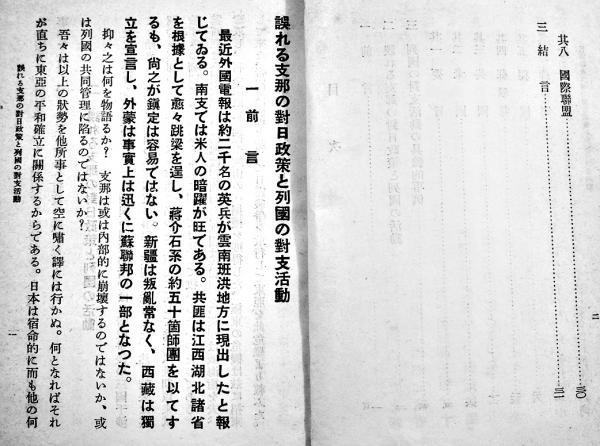 其八　國際聯盟…………二〇
三　結　言…………三一
二
誤れる支那の對日政策と列國の對支活動
一　前　言
最近外國電報は約二千名の英兵が雲南班洪地方に現出したと報
じてゐる。南支では米人の暗躍が旺である。共匪は江西湖北諸省
を根據として愈々跳梁を逞し、蔣介石系の約五十箇師團を以てす
るも、尙之が鎭定は容易ではない。新疆は叛亂常なく、西藏は獨
立を宣言し、外蒙は事實上は迅くに蘇聯邦の一部となつた。
抑々之は何を物語るか？　支那は或は内部的に崩壞するのではないか、或
は列國の共同管理に陷るのではないか？
吾々は以上の狀勢を他所事として空に嘯く譯には行かぬ。何となればそれ
が直ちに東亞の平和確立に關係するからである。日本は宿命的に而も他の何
誤れる支那の對日政策と列國の對支活動
一